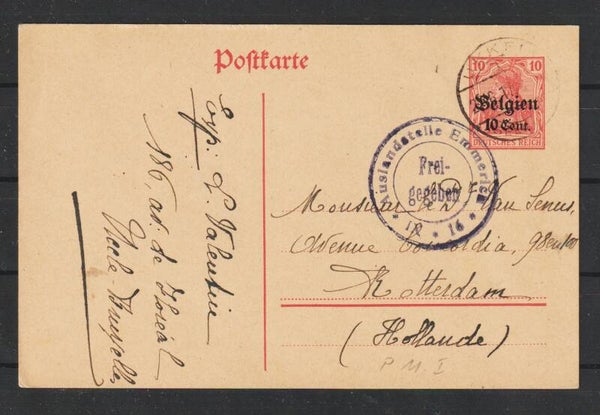 Postkarte
10 10
Belgien
10 Cent.
DEUTSCHES REICH
Auslandstelle Emmerich
Frei-
gegeben
* 16 *
Exp: L. Valentin
186, av. de
Uccle-Bruxelles
Monsieur Van
Avenue Concordia,
Rotterdam
(Hollande)
P M I